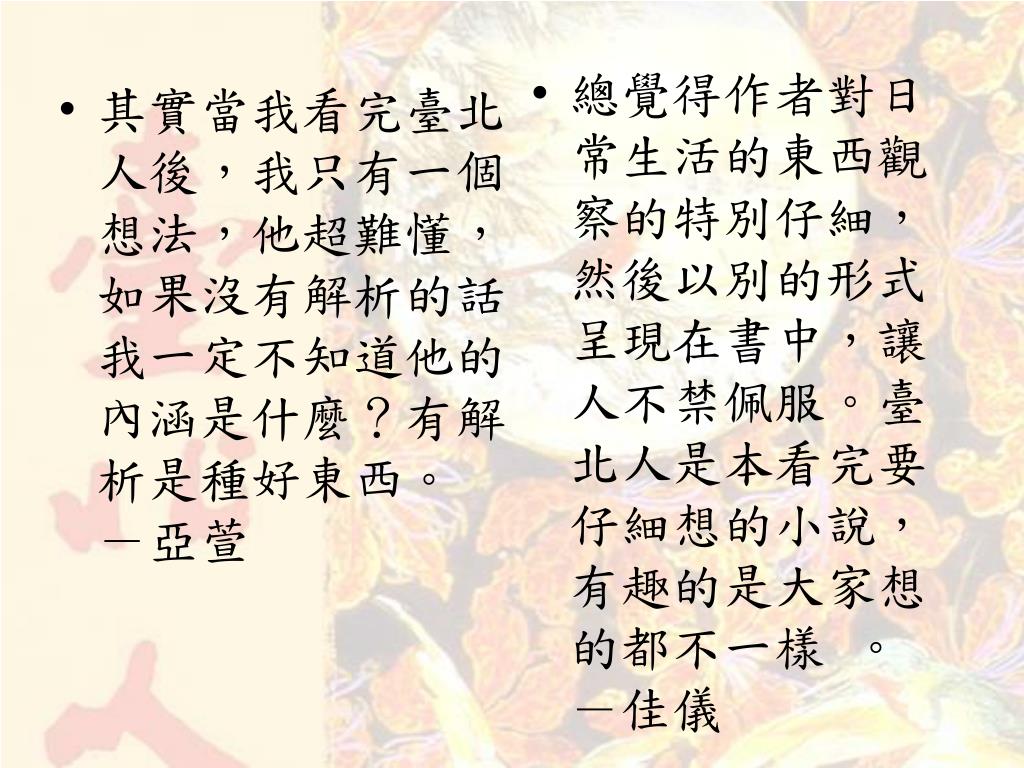 • 其實當我看完臺北
人後，我只有一個
想法，他超難懂，
如果沒有解析的話
我一定不知道他的
內涵是什麼？有解
析是種好東西。
－亞萱
• 總覺得作者對日
常生活的東西觀
察的特別仔細，
然後以別的形式
呈現在書中，讓
人不禁佩服。臺
北人是本看完要
仔細想的小說，
有趣的是大家想
的都不一樣 。
－佳儀
臺
北
人